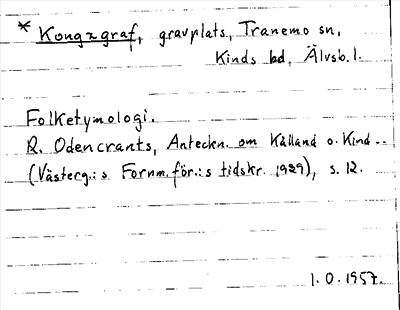 * Kongzgraf, gravplats, Tranemo sn,
Kinds hd, Älvsb. l.
Folketymologi.
R. Odencrants, Anteckn. om Kålland o. Kind..
(Västerg.:s Fornm.för.:s tidskr. 1929), s. 12.
1.0.1957.